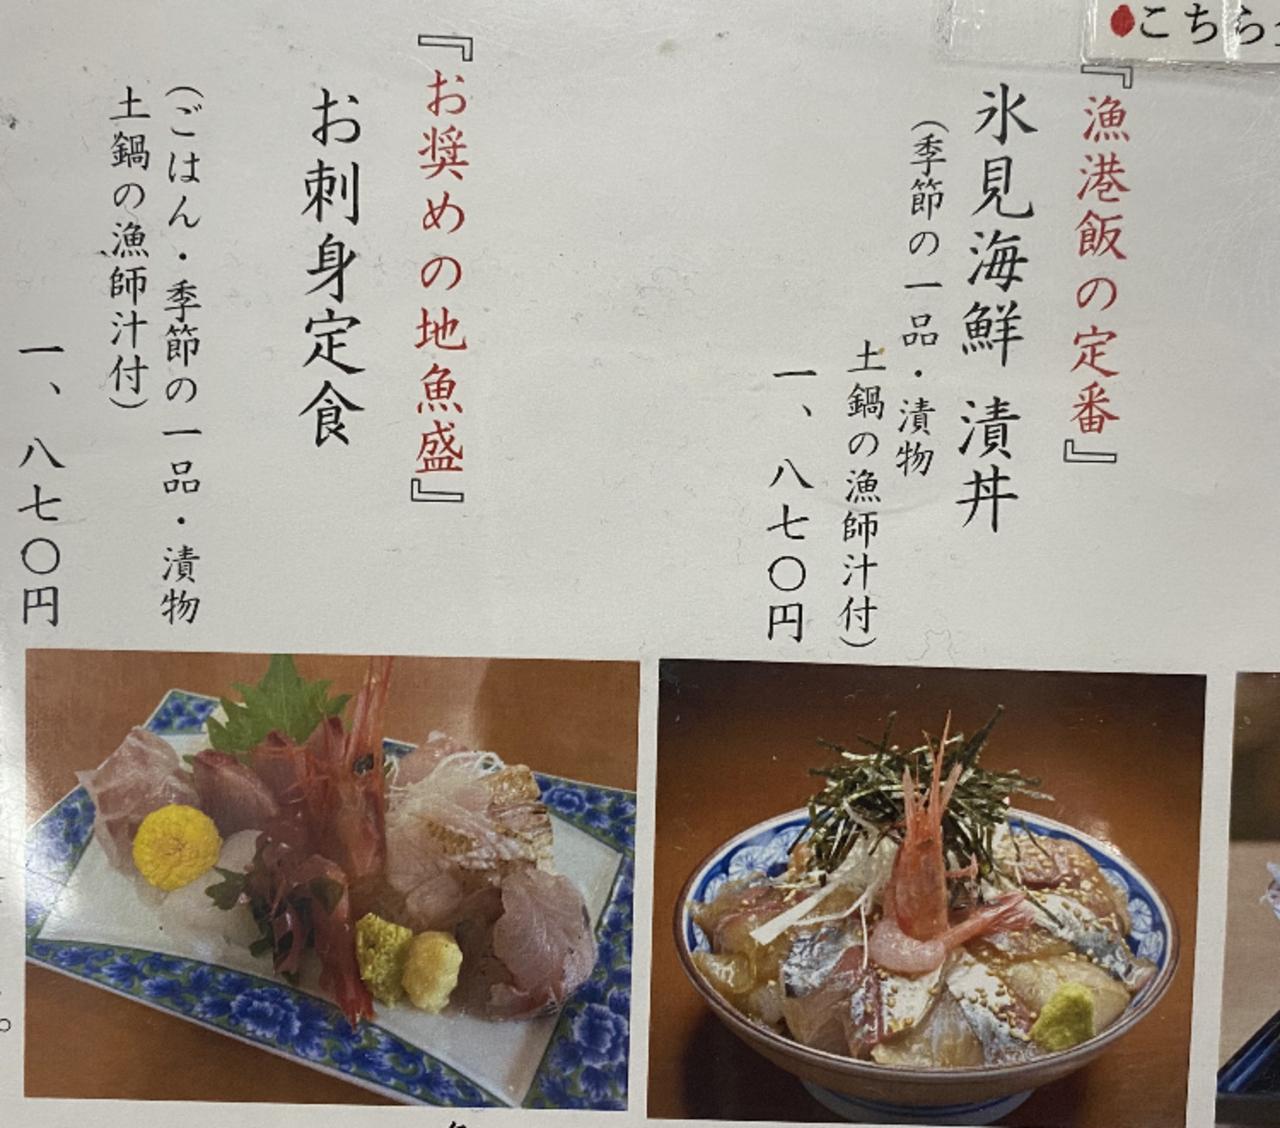 ●こちら
『漁港飯の定番』
氷見海鮮 漬丼
(季節の一品・漬物
土鍋の漁師汁付)
一、八七〇円
『お奨めの地魚盛』
お刺身定食
(ごはん・季節の一品・漬物
土鍋の漁師汁付)
一、八七〇円